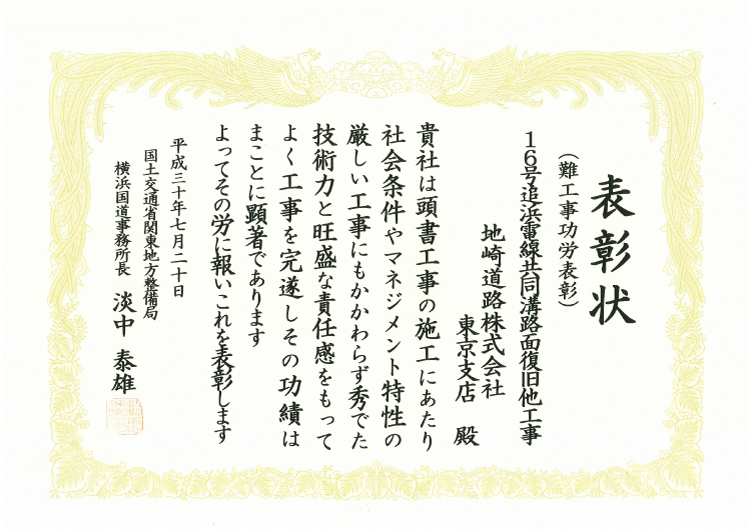 表彰状
（難工事功労表彰）
16号追浜電線共同溝路面復旧他工事
地崎道路株式会社
東京支店 殿
貴社は頭書工事の施工にあたり
社会条件やマネジメント特性の
厳しい工事にもかかわらず秀でた
技術力と旺盛な責任感をもって
よく工事を完遂しその功績は
まことに顕著であります
よってその労に報いこれを表彰します
平成三十年七月二十日
国土交通省関東地方整備局
横浜国道事務所長 淡中 泰雄